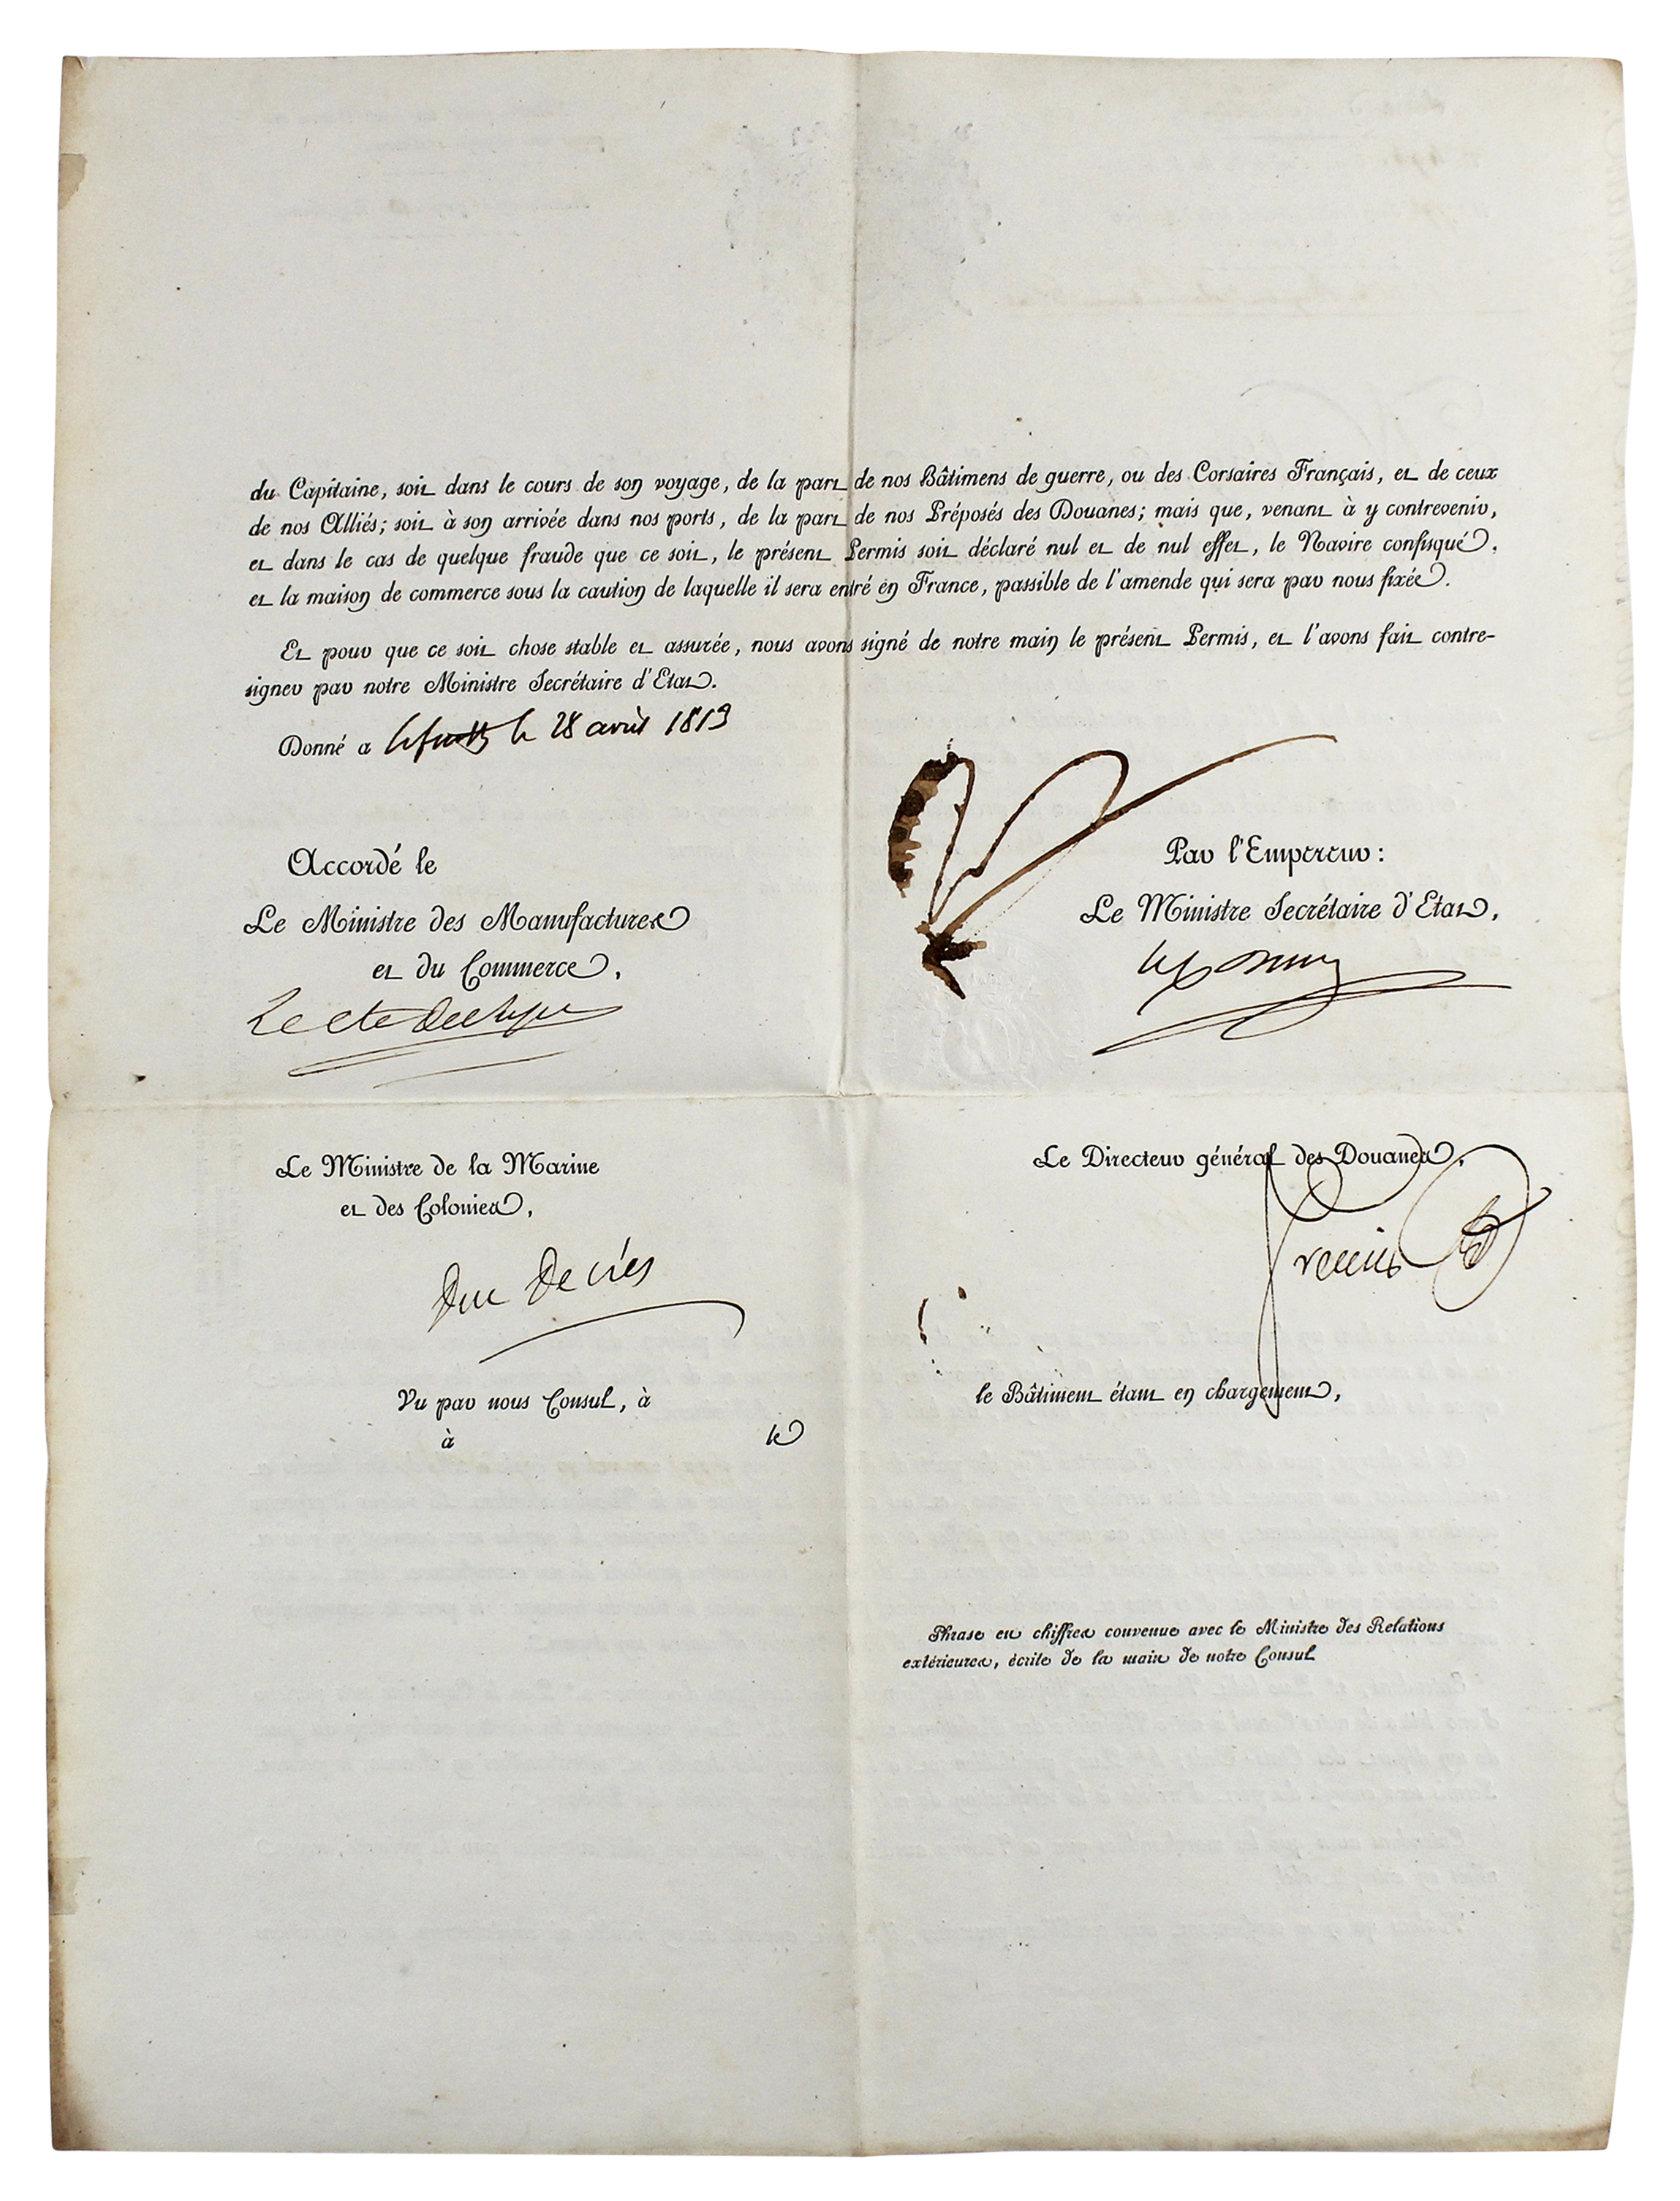 du Capitaine, soit dans le cours de son voyage, de la part de nos Bâtimens de guerre, ou des Corsaires Français, et de ceux
de nos Alliés; soit à son arrivée dans nos ports, de la part de nos Préposés des Douanes; mais que, venant à y contrevenir,
et dans le cas de quelque fraude que ce soit, le présent Permis soit déclaré nul et de nul effet, le Navire confisqué,
et la maison de commerce sous la caution de laquelle il sera entré en France, passible de l'amende qui sera par nous fixée.
Et pour que ce soit chose stable et assurée, nous avons signé de notre main le présent Permis, et l'avons fait contre-
signer par notre Ministre Secrétaire d'Etat.
Donné a le 28 avril 1813
Accordé le
Le Ministre des Manufactures
et du Commerce,
Le cte
Par l'Empereur:
Le Ministre Secrétaire d'Etat,
Le Ministre de la Marine
et des Colonies,
Duc Decrès
Le Directeur général des Douanes,
Vu par nous Consul, à
à le
le Bâtiment étant en chargement,
Phrase en chiffres convenue avec le Ministre des Relations
extérieures, écrite de la main de notre Consul